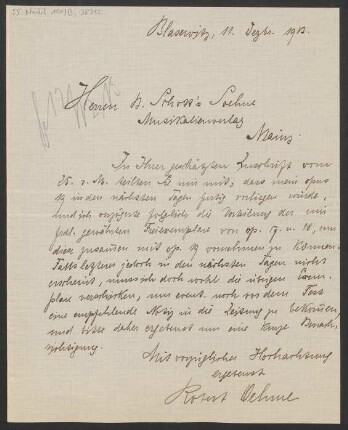 Blasewitz, 11. Dezbr. 1913.
Herren B. Schott's Soehne
Musikalienverlag
Mainz
In Ihrer geschätzten Zuschrift vom
25. v. M. teilten Sie mir mit, dass mein opus
19 in den nächsten Tagen fertig vorliegen würde,
und ich verzögerte folglich die Verteilung der mir
frdl. gewährten Freiexemplare von op. 17 u. 18, um
diese zusammen mit op. 19 vornehmen zu können.
Falls letzteres jedoch in den nächsten Tagen nicht
erscheint, muss ich doch wohl die übrigen Exem-
plare verschicken, um event. noch vor dem Fest
eine empfehlende Notiz in die Zeitung zu bekommen,
und bitte daher ergebenst um eine kurze Benach-
richtigung.
Mit vorzüglicher Hochachtung
ergebenst
Robert Oehme